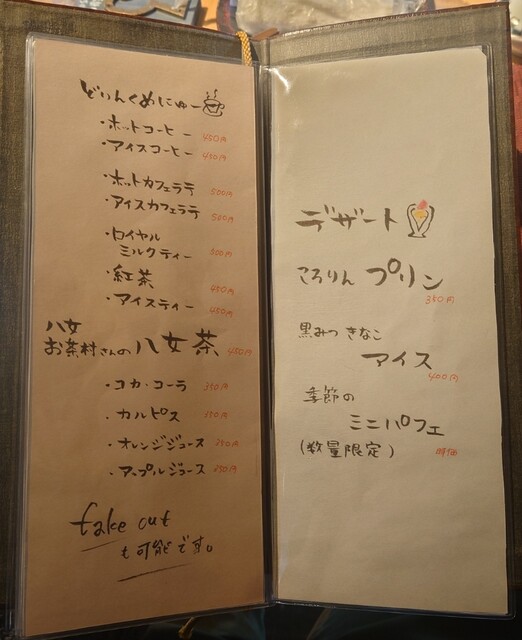 どりんくめにゅー
・ホットコーヒー 450円
・アイスコーヒー 450円
・ホットカフェラテ 500円
・アイスカフェラテ 500円
・ロイヤル
ミルクティー 500円
・紅茶 450円
・アイスティー 450円
八女
お茶村さんの八女茶 450円
・コカ・コーラ 350円
・カルピス 350円
・オレンジジュース 350円
・アップルジュース 350円
take out
も可能です。
デザート
ころりん プリン
350円
黒みつ きなこ
アイス
400円
季節の
ミニパフェ
(数量限定) 時価